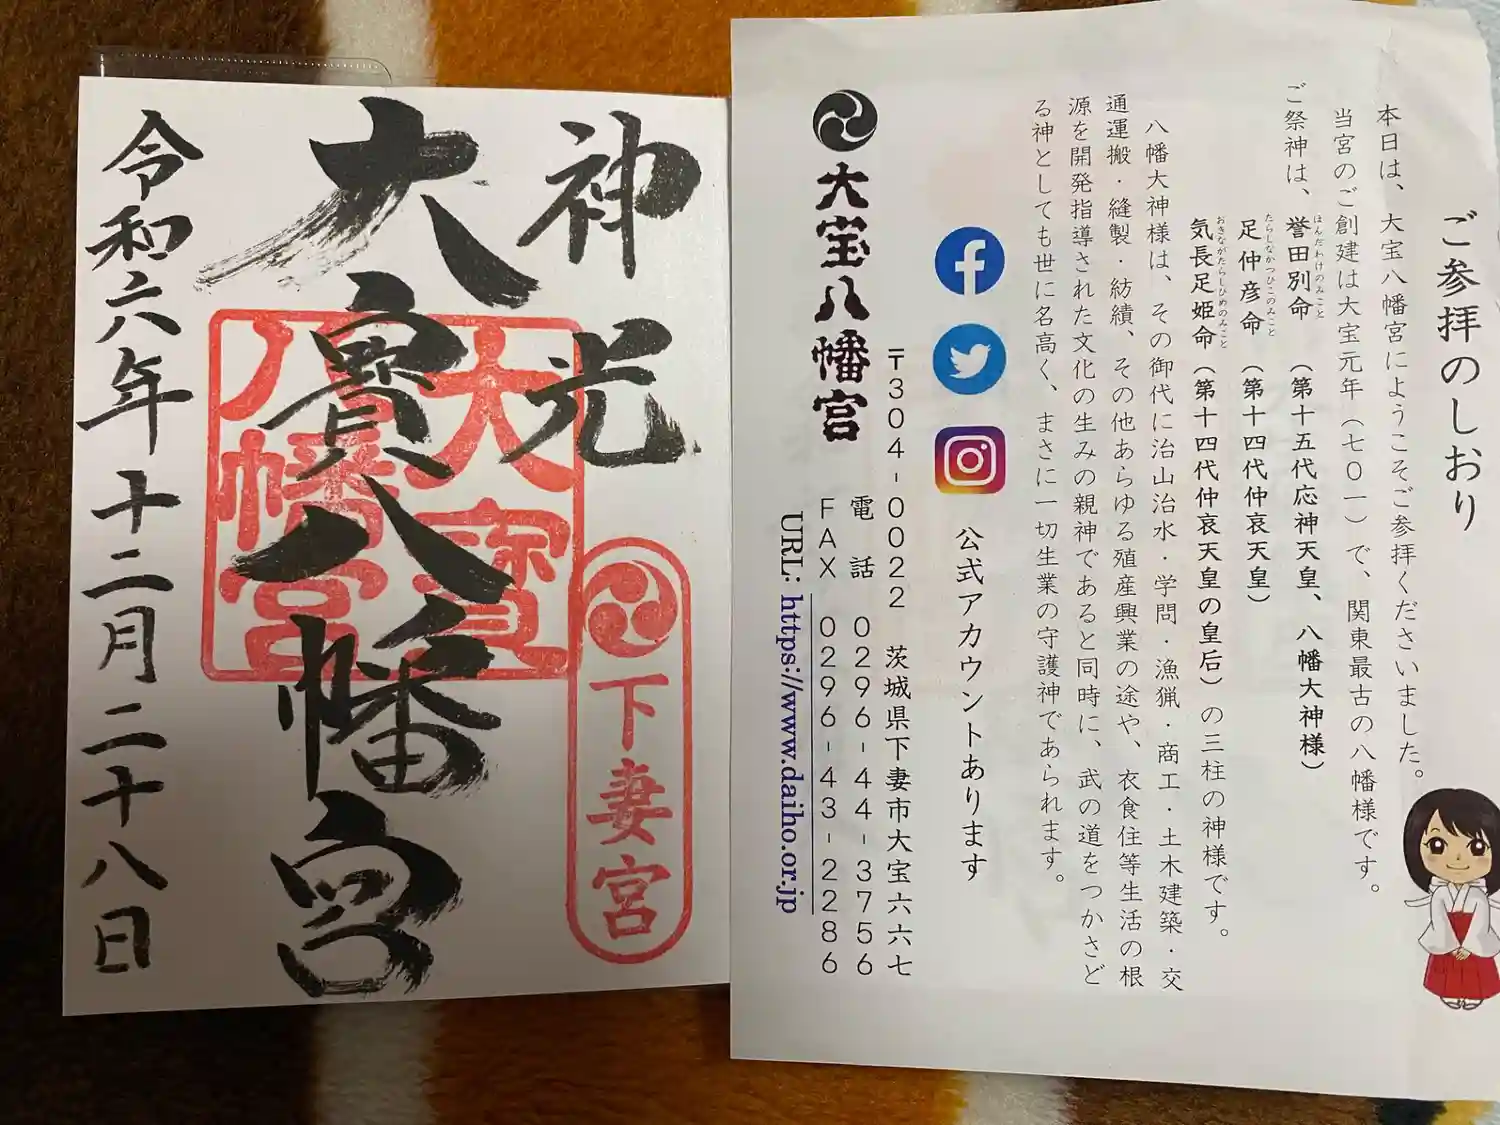 神光
大寳八幡宮
令和六年十二月二十八日
大寳
八幡宮
下妻宮
ご参拝のしおり
本日は、大宝八幡宮にようこそご参拝くださいました。
当宮のご創建は大宝元年(七〇一)で、関東最古の八幡様です。
ご祭神は、誉田別命(第十五代応神天皇、八幡大神様)
ほんだわけのみこと
足仲彦命(第十四代仲哀天皇)
たらしなかつひこのみこと
気長足姫命(第十四代仲哀天皇の皇后)の三柱の神様です。
おきながたらしひめのみこと
八幡大神様は、その御代に治山治水・学問・漁猟・商工・土木建築・交
通運搬・縫製・紡績、その他あらゆる殖産興業の途や、衣食住等生活の根
源を開発指導された文化の生みの親神であると同時に、武の道をつかさど
る神としても世に名高く、まさに一切生業の守護神であられます。
公式アカウントあります
大宝八幡宮
〒304-0022 茨城県下妻市大宝六六七
電話 0296-44-3756
FAX 0296-43-2286
URL: https://www.daiho.or.jp